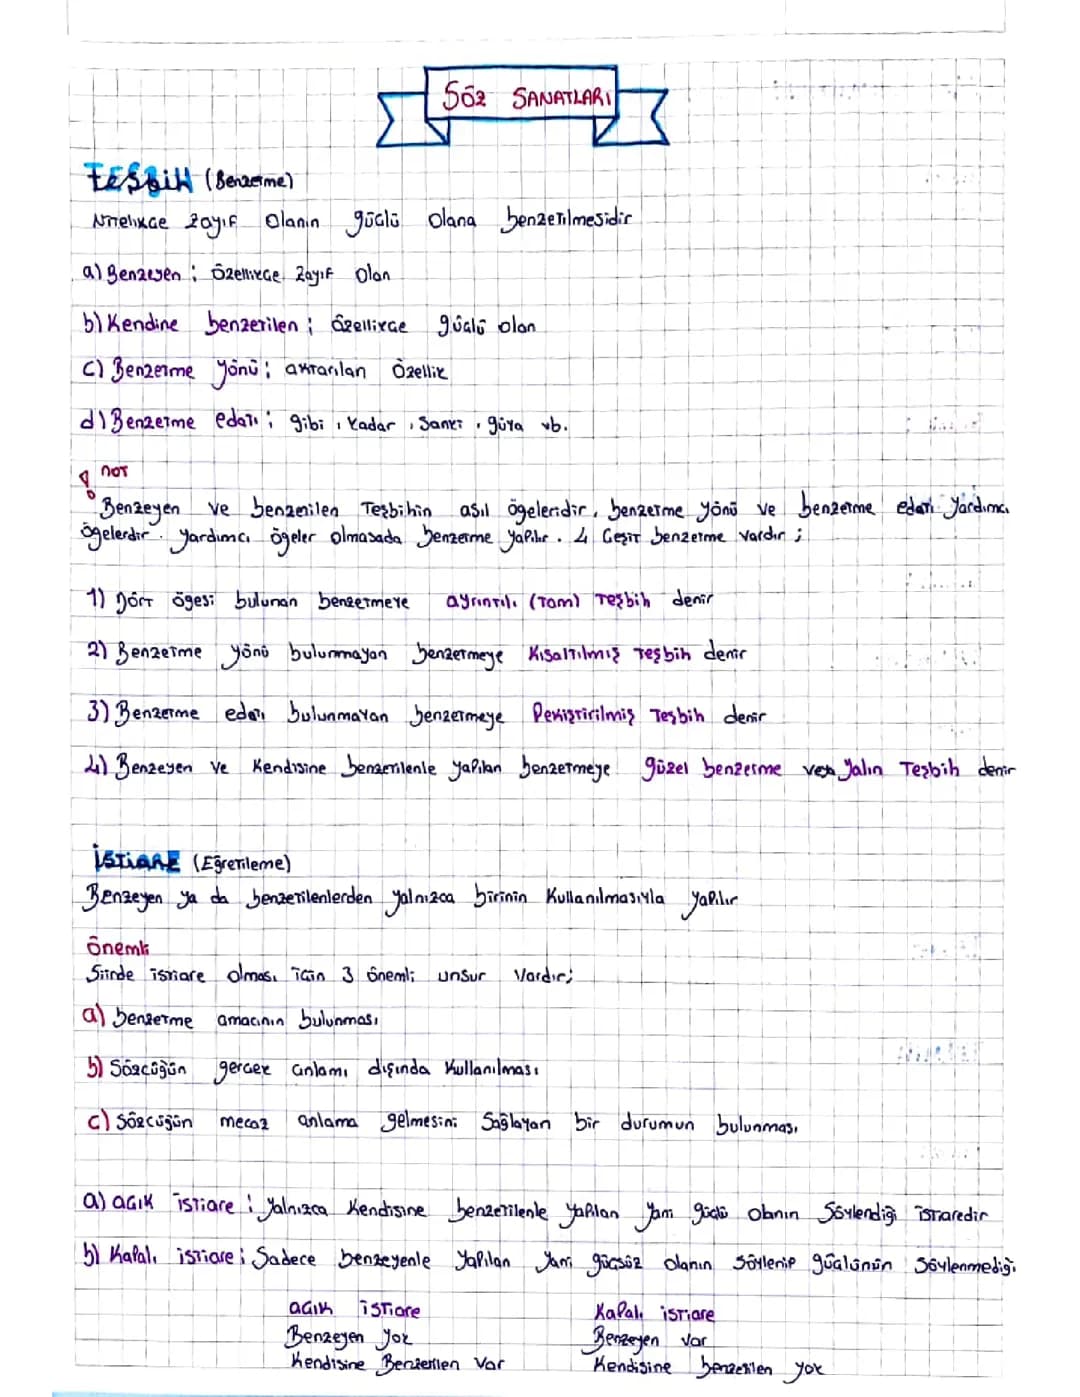 SÖZ SANATLARI
TEŞBİH (Benzetme)
Nitelikçe zayıf olanın güçlü olana benzetilmesidir
a) Benzeyen : özellikçe zayıf olan
b) Kendine benzetilen ; özellikçe güçlü olan
c) Benzetme yönü ; aktarılan özellik
d) Benzetme edatı ; gibi , kadar , sanki , güya vb.
not
Benzeyen ve benzetilen Teşbihin asıl ögeleridir, benzetme yönü ve benzetme edatı yardımcı
ögelerdir. yardımcı ögeler olmasada benzetme yapılır. 4 Çeşit benzetme vardır ;
1) Dört ögesi bulunan benzetmeye ayrıntılı (Tam) Teşbih denir
2) Benzetme yönü bulunmayan benzetmeye Kısaltılmış Teşbih denir
3) Benzetme edatı bulunmayan benzetmeye Pekiştirilmiş Teşbih denir
4) Benzeyen ve Kendisine benzetilenle yapılan benzetmeye güzel benzetme veya Yalın Teşbih denir
İSTİARE (Eğretileme)
Benzeyen ya da benzetilenlerden yalnızca birinin Kullanılmasıyla yapılır
Önemli
Şiirde istiare olması için 3 önemli unsur vardır;
a) benzetme amacının bulunması
b) Sözcüğün gerçek anlamı dışında Kullanılması
c) Sözcüğün mecaz anlama gelmesini Sağlayan bir durumun bulunması
a) açık istiare ; Yalnızca Kendisine benzetilenle yapılan yani güçlü olanın Söylendiği istiaredir
b) Kapalı istiare ; Sadece benzeyenle Yapılan Yani güçsüz olanın söylenip güçlünün Söylenmediği
açık istiare Kapalı istiare
Benzeyen yok Benzeyen var
Kendisine Benzetilen var Kendisine benzetilen yok